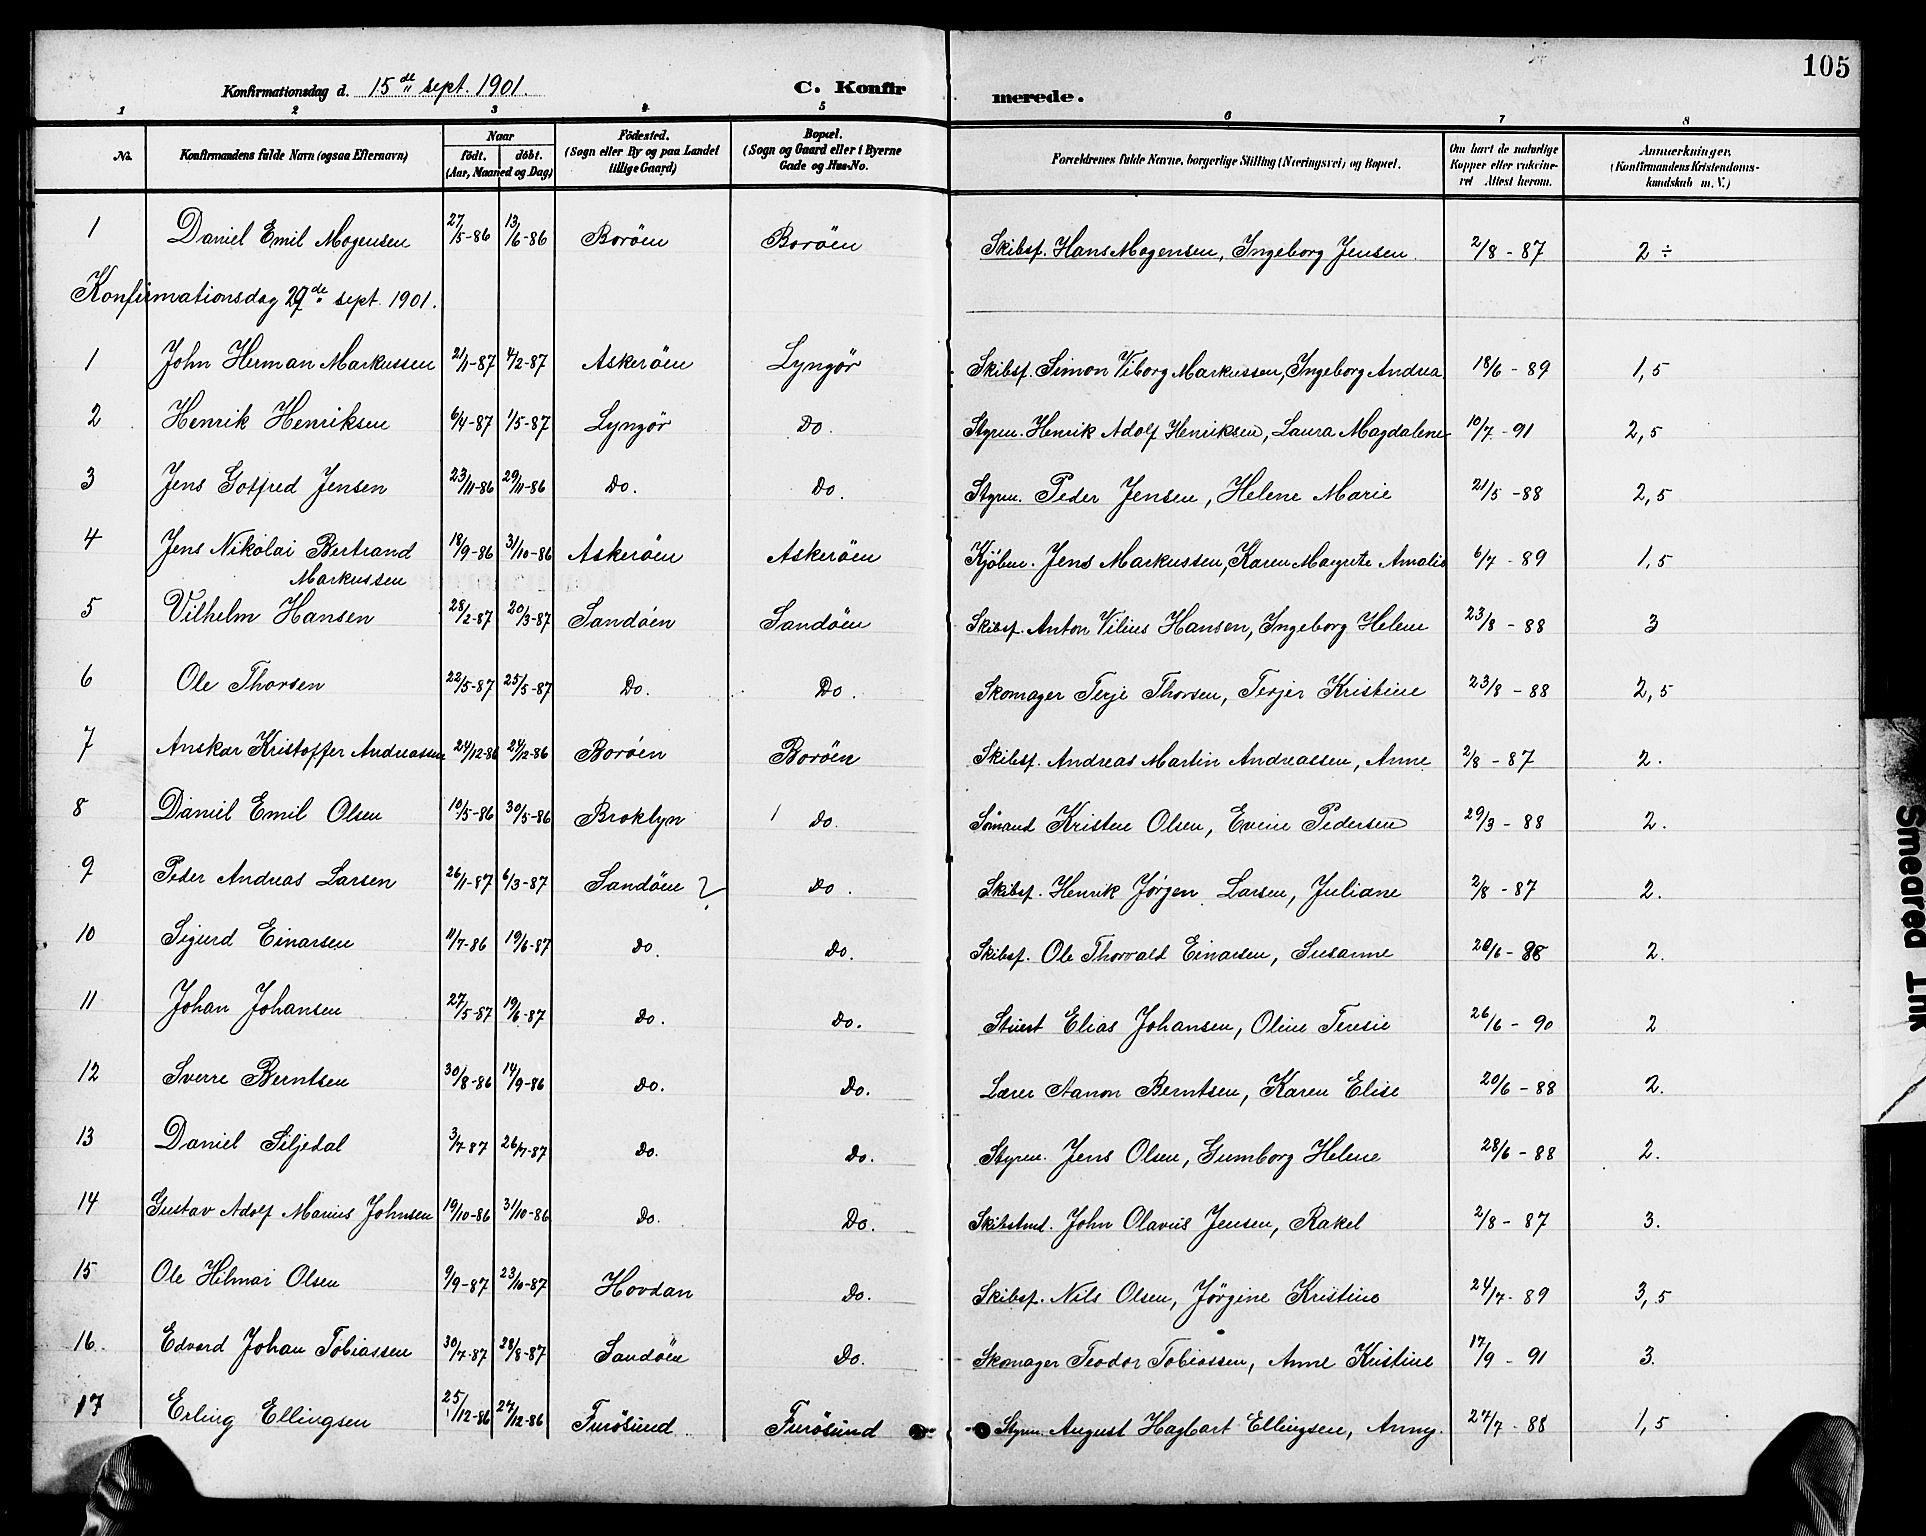 105
Konfirmationsdag d. 15de sept. 1901. C. Konfirmerede.
1 2 3 4 5 6 7 8
No. Konfirmandens fulde Navn (ogsaa Efternavn) Naar födt. döbt. (Aar, Maaned og Dag) Födested. (Sogn eller By og paa Landet tillige Gaard) Bopæl. (Sogn og Gaard eller i Byerne Gade og Hus-No. Forældrenes fulde Navne, borgerlige Stilling (Næringsvei) og Bopæl. Om havt de naturlige Kopper eller vakcineret Attest herom. Anmærkninger. (Konfirmandens Kristendomskundskab m. V.)
1 Daniel Emil Mogensen 27/5-86 13/6-86 Boröen Boröen Skibsf. Hans Mogensen, Ingeborg Jensen 2/8-87 2 ÷
Konfirmationsdag 29de sept. 1901.
1 John Herman Markussen 21/1-87 4/2-87 Askeröen Lyngör Skibsf. Simon Viborg Markussen, Ingeborg Andrea 18/6-89 1,5
2 Henrik Henriksen 6/4-87 1/5-87 Lyngör Do. Styrm. Henrik Adolf Henriksen, Laura Magdalene 10/7-91 2,5
3 Jens Gotfred Jensen 23/11-86 29/11-86 Do. Do. Styrm. Peder Jensen, Helene Marie 21/5-88 2,5
4 Jens Nikolai Bertrand 18/9-86 31/10-86 Askeröen Askeröen Kjöbm. Jens Markussen, Karen Magrete Amalie 6/7-89 1,5
Markussen
5 Vilhelm Hansen 28/2-87 20/3-87 Sandöen Sandöen Skibsf. Anton Vilius Hansen, Ingeborg Helene 23/8-88 3
6 Ole Thorsen 22/5-87 25/5-87 Do. Do. Skomager Terje Thorsen, Terjer Kristine 23/8-88 2,5
7 Anskar Kristoffer Andreassen 24/12-86 24/12-86 Boröen Boröen Skibsf. Andreas Martin Andreassen, Anne 2/8-87 2.
8 Daniel Emil Olsen 10/5-86 30/5-86 Broklyn Do. Sömand Kristen Olsen, Evine Pedersen 29/3-88 2.
9 Peder Andreas Larsen 26/1-87 6/3-87 Sandöen ? Do. Skibsf. Henrik Jörgen Larsen, Juliane 2/8-87 2.
10 Sigurd Einarsen 11/7-86 19/6-87 Do. Do. Skibsf. Ole Thorvald Einarsen, Susanne 2.
11 Johan Johansen 27/5-87 19/6-87 Do. Do. Stuert Elias Johansen, Oline Teresie 26/6-90 2
12 Sverre Berntsen 30/8-86 14/9-86 Do. Do. Lærer Aanon Berntsen, Karen Elise 20/6-88 2.
13 Daniel Siljedal 3/7-87 26/7-87 Do. Do. Styrm. Jens Olsen, Gumborg Helene 28/6-88 2.
14 Gustav Adolf Marius Johnsen 19/10-86 31/10-86 Do. Do. John Olavus Jensen, Rakel 2/8-87 3.
15 Ole Hilmar Olsen 9/9-87 23/10-87 Hovdan Do. Skibsf. Nils Olsen, Jörgine Kristine 24/7-89 3,5
16. Edvard Johan Tobiassen 30/7-87 28/8-87 Sandöen Do. Skomager Teodor Tobiassen, Anne Kristine 17/9-91 3.
17 Erling Ellingsen 25/12-86 27/12-86 Furösund Furösund Styrm. August Hagbart Ellingsen, Anny. 27/7-88 1,5
Smeared Ink